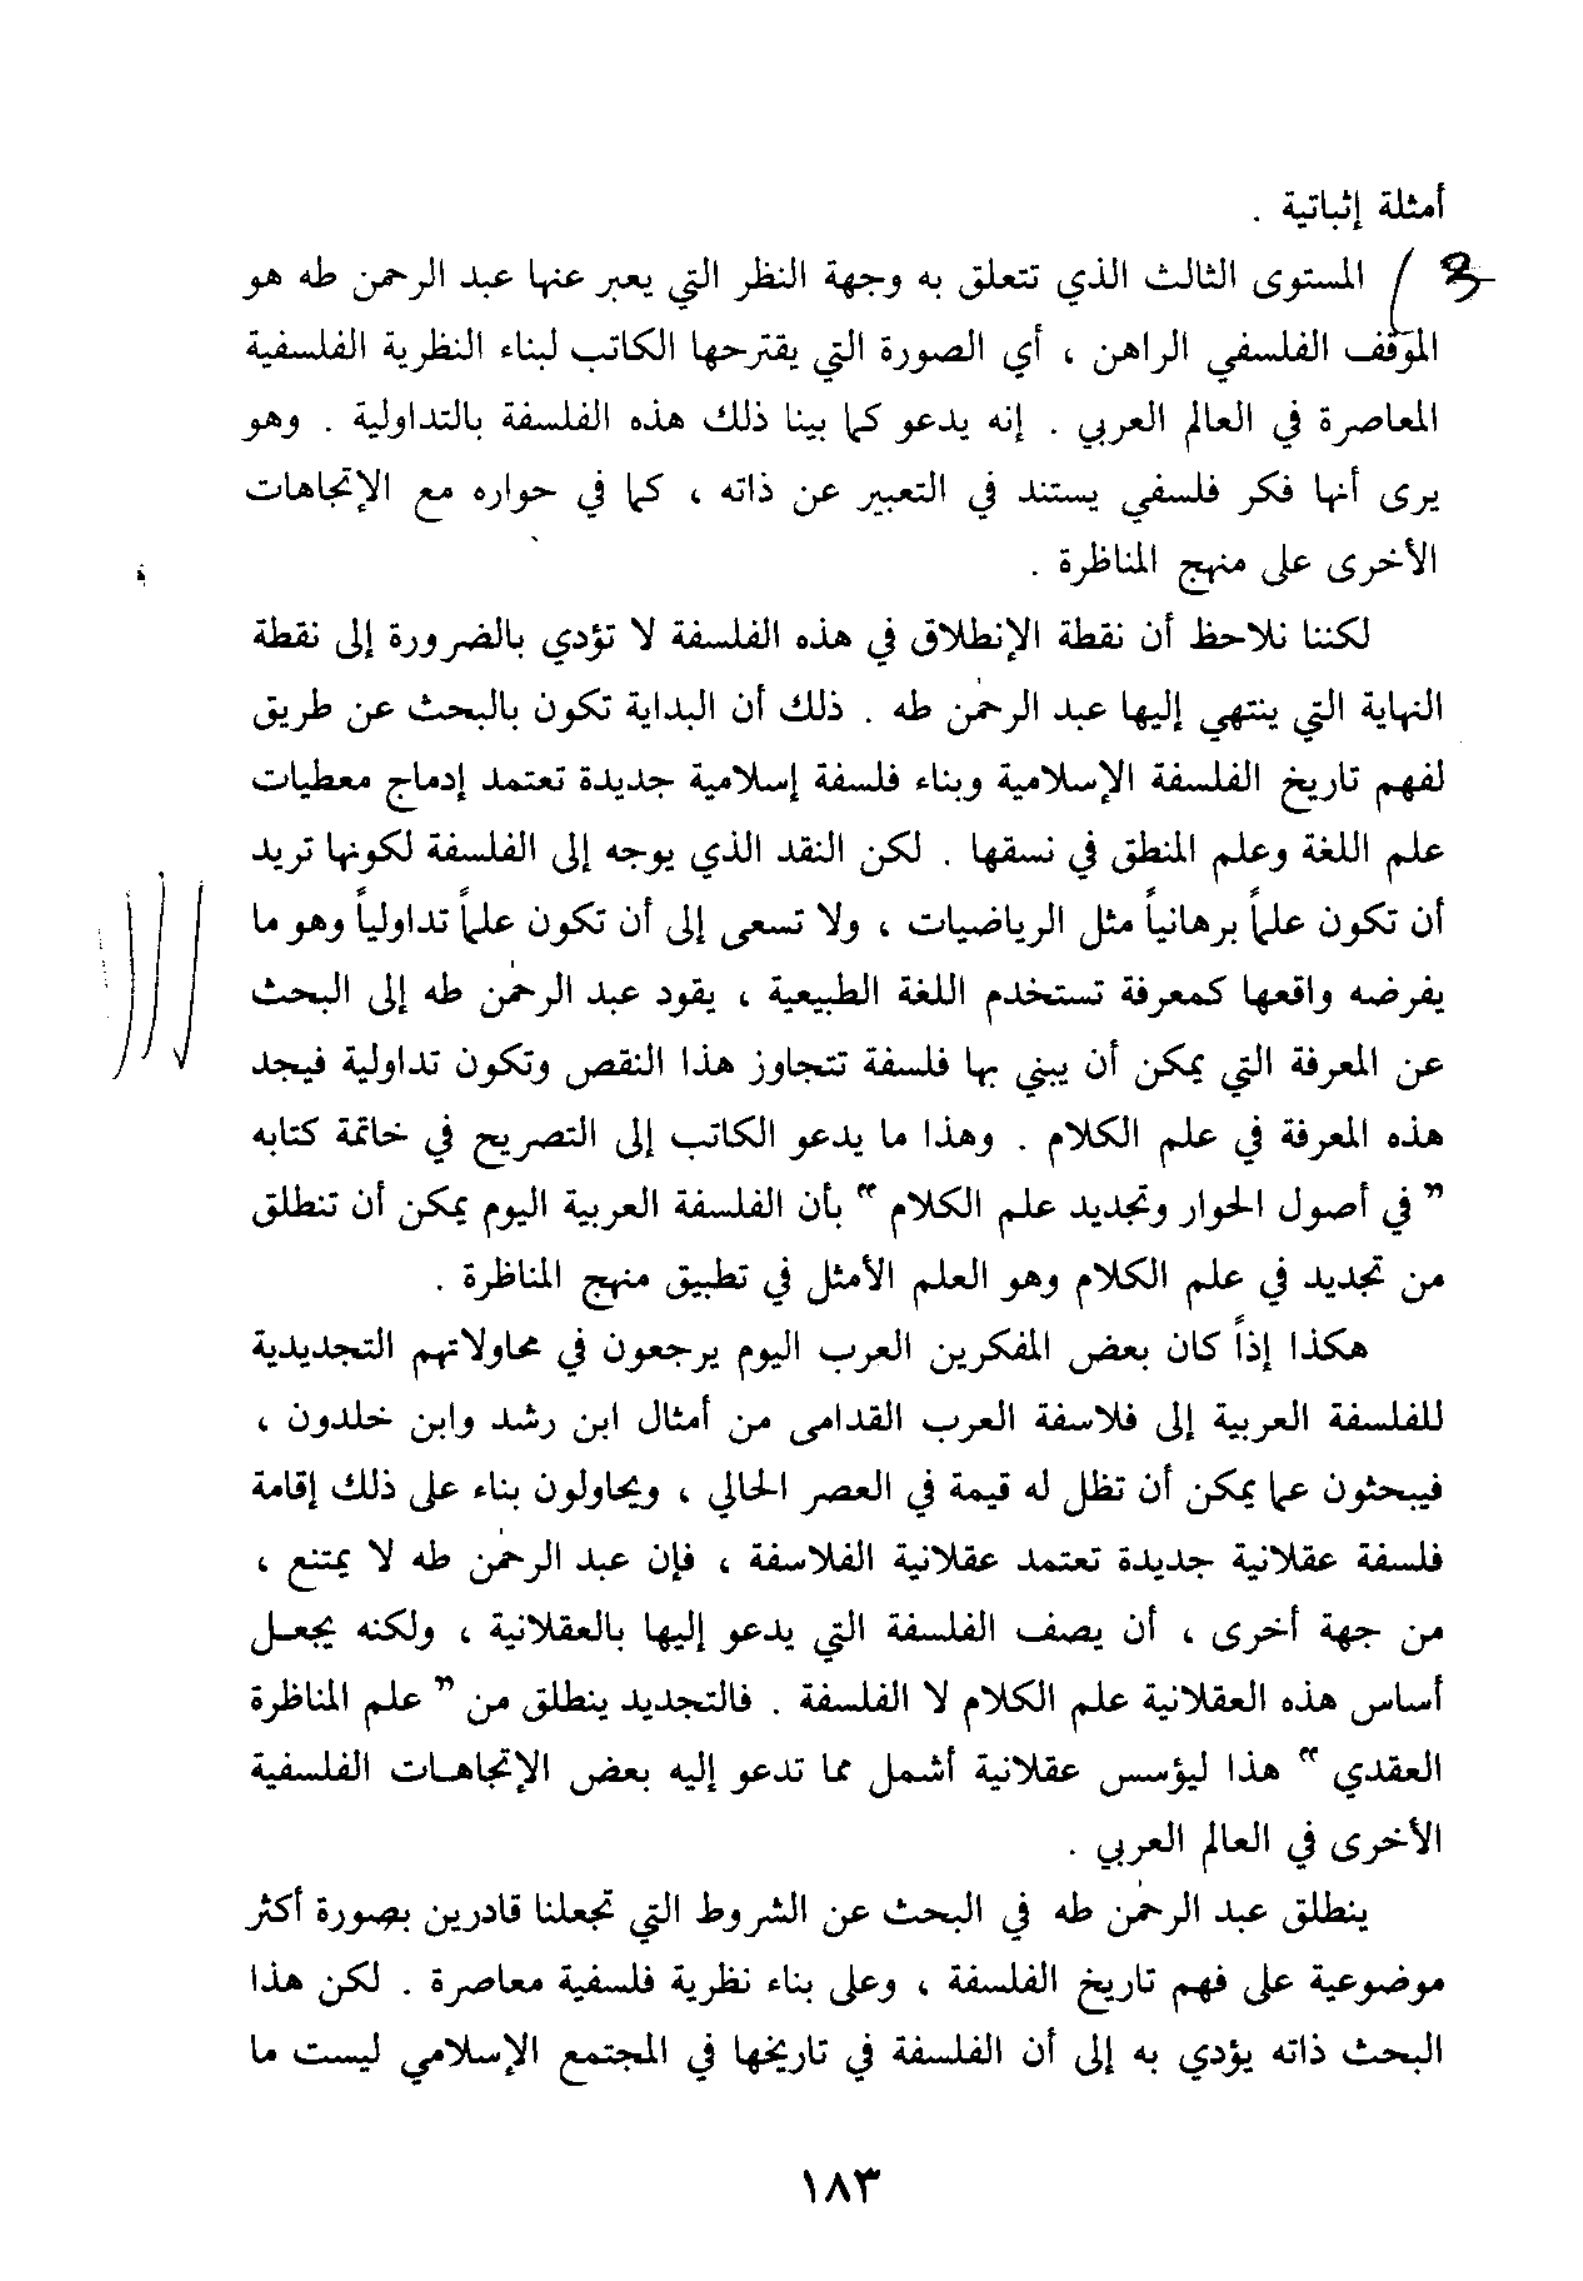 أمثلة إثباتية .
3 / المستوى الثالث الذي تتعلق به وجهة النظر التي يعبر عنها عبد الرحمن طه هو
الموقف الفلسفي الراهن ، أي الصورة التي يقترحها الكاتب لبناء النظرية الفلسفية
المعاصرة في العالم العربي . إنه يدعو كما بينا ذلك هذه الفلسفة بالتداولية . وهو
يرى أنها فكر فلسفي يستند في التعبير عن ذاته ، كما في حواره مع الإتجاهات
الأخرى على منهج المناظرة .
لكننا نلاحظ أن نقطة الإنطلاق في هذه الفلسفة لا تؤدي بالضرورة إلى نقطة
النهاية التي ينتهي إليها عبد الرحمٰن طه . ذلك أن البداية تكون بالبحث عن طريق
لفهم تاريخ الفلسفة الإسلامية وبناء فلسفة إسلامية جديدة تعتمد إدماج معطيات
علم اللغة وعلم المنطق في نسقها . لكن النقد الذي يوجه إلى الفلسفة لكونها تريد
أن تكون علماً برهانياً مثل الرياضيات ، ولا تسعى إلى أن تكون علماً تداولياً وهو ما
يفرضه واقعها كمعرفة تستخدم اللغة الطبيعية ، يقود عبد الرحمٰن طه إلى البحث
عن المعرفة التي يمكن أن يبني بها فلسفة تتجاوز هذا النقص وتكون تداولية فيجد
هذه المعرفة في علم الكلام . وهذا ما يدعو الكاتب إلى التصريح في خاتمة كتابه
” في أصول الحوار وتجديد علم الكلام “ بأن الفلسفة العربية اليوم يمكن أن تنطلق
من تجديد في علم الكلام وهو العلم الأمثل في تطبيق منهج المناظرة .
هكذا إذاً كان بعض المفكرين العرب اليوم يرجعون في محاولاتهم التجديدية
للفلسفة العربية إلى فلاسفة العرب القدامى من أمثال ابن رشد وابن خلدون ،
فيبحثون عما يمكن أن تظل له قيمة في العصر الحالي ، ويحاولون بناء على ذلك إقامة
فلسفة عقلانية جديدة تعتمد عقلانية الفلاسفة ، فإن عبد الرحمٰن طه لا يمتنع ،
من جهة أخرى ، أن يصف الفلسفة التي يدعو إليها بالعقلانية ، ولكنه يجعـل
أساس هذه العقلانية علم الكلام لا الفلسفة . فالتجديد ينطلق من ” علم المناظرة
العقدي “ هذا ليؤسس عقلانية أشمل مما تدعو إليه بعض الإتجاهـات الفلسفية
الأخرى في العالم العربي .
ينطلق عبد الرحمٰن طه في البحث عن الشروط التي تجعلنا قادرين بصورة أكثر
موضوعية على فهم تاريخ الفلسفة ، وعلى بناء نظرية فلسفية معاصرة . لكن هذا
البحث ذاته يؤدي به إلى أن الفلسفة في تاريخها في المجتمع الإسلامي ليست ما
١٨٣